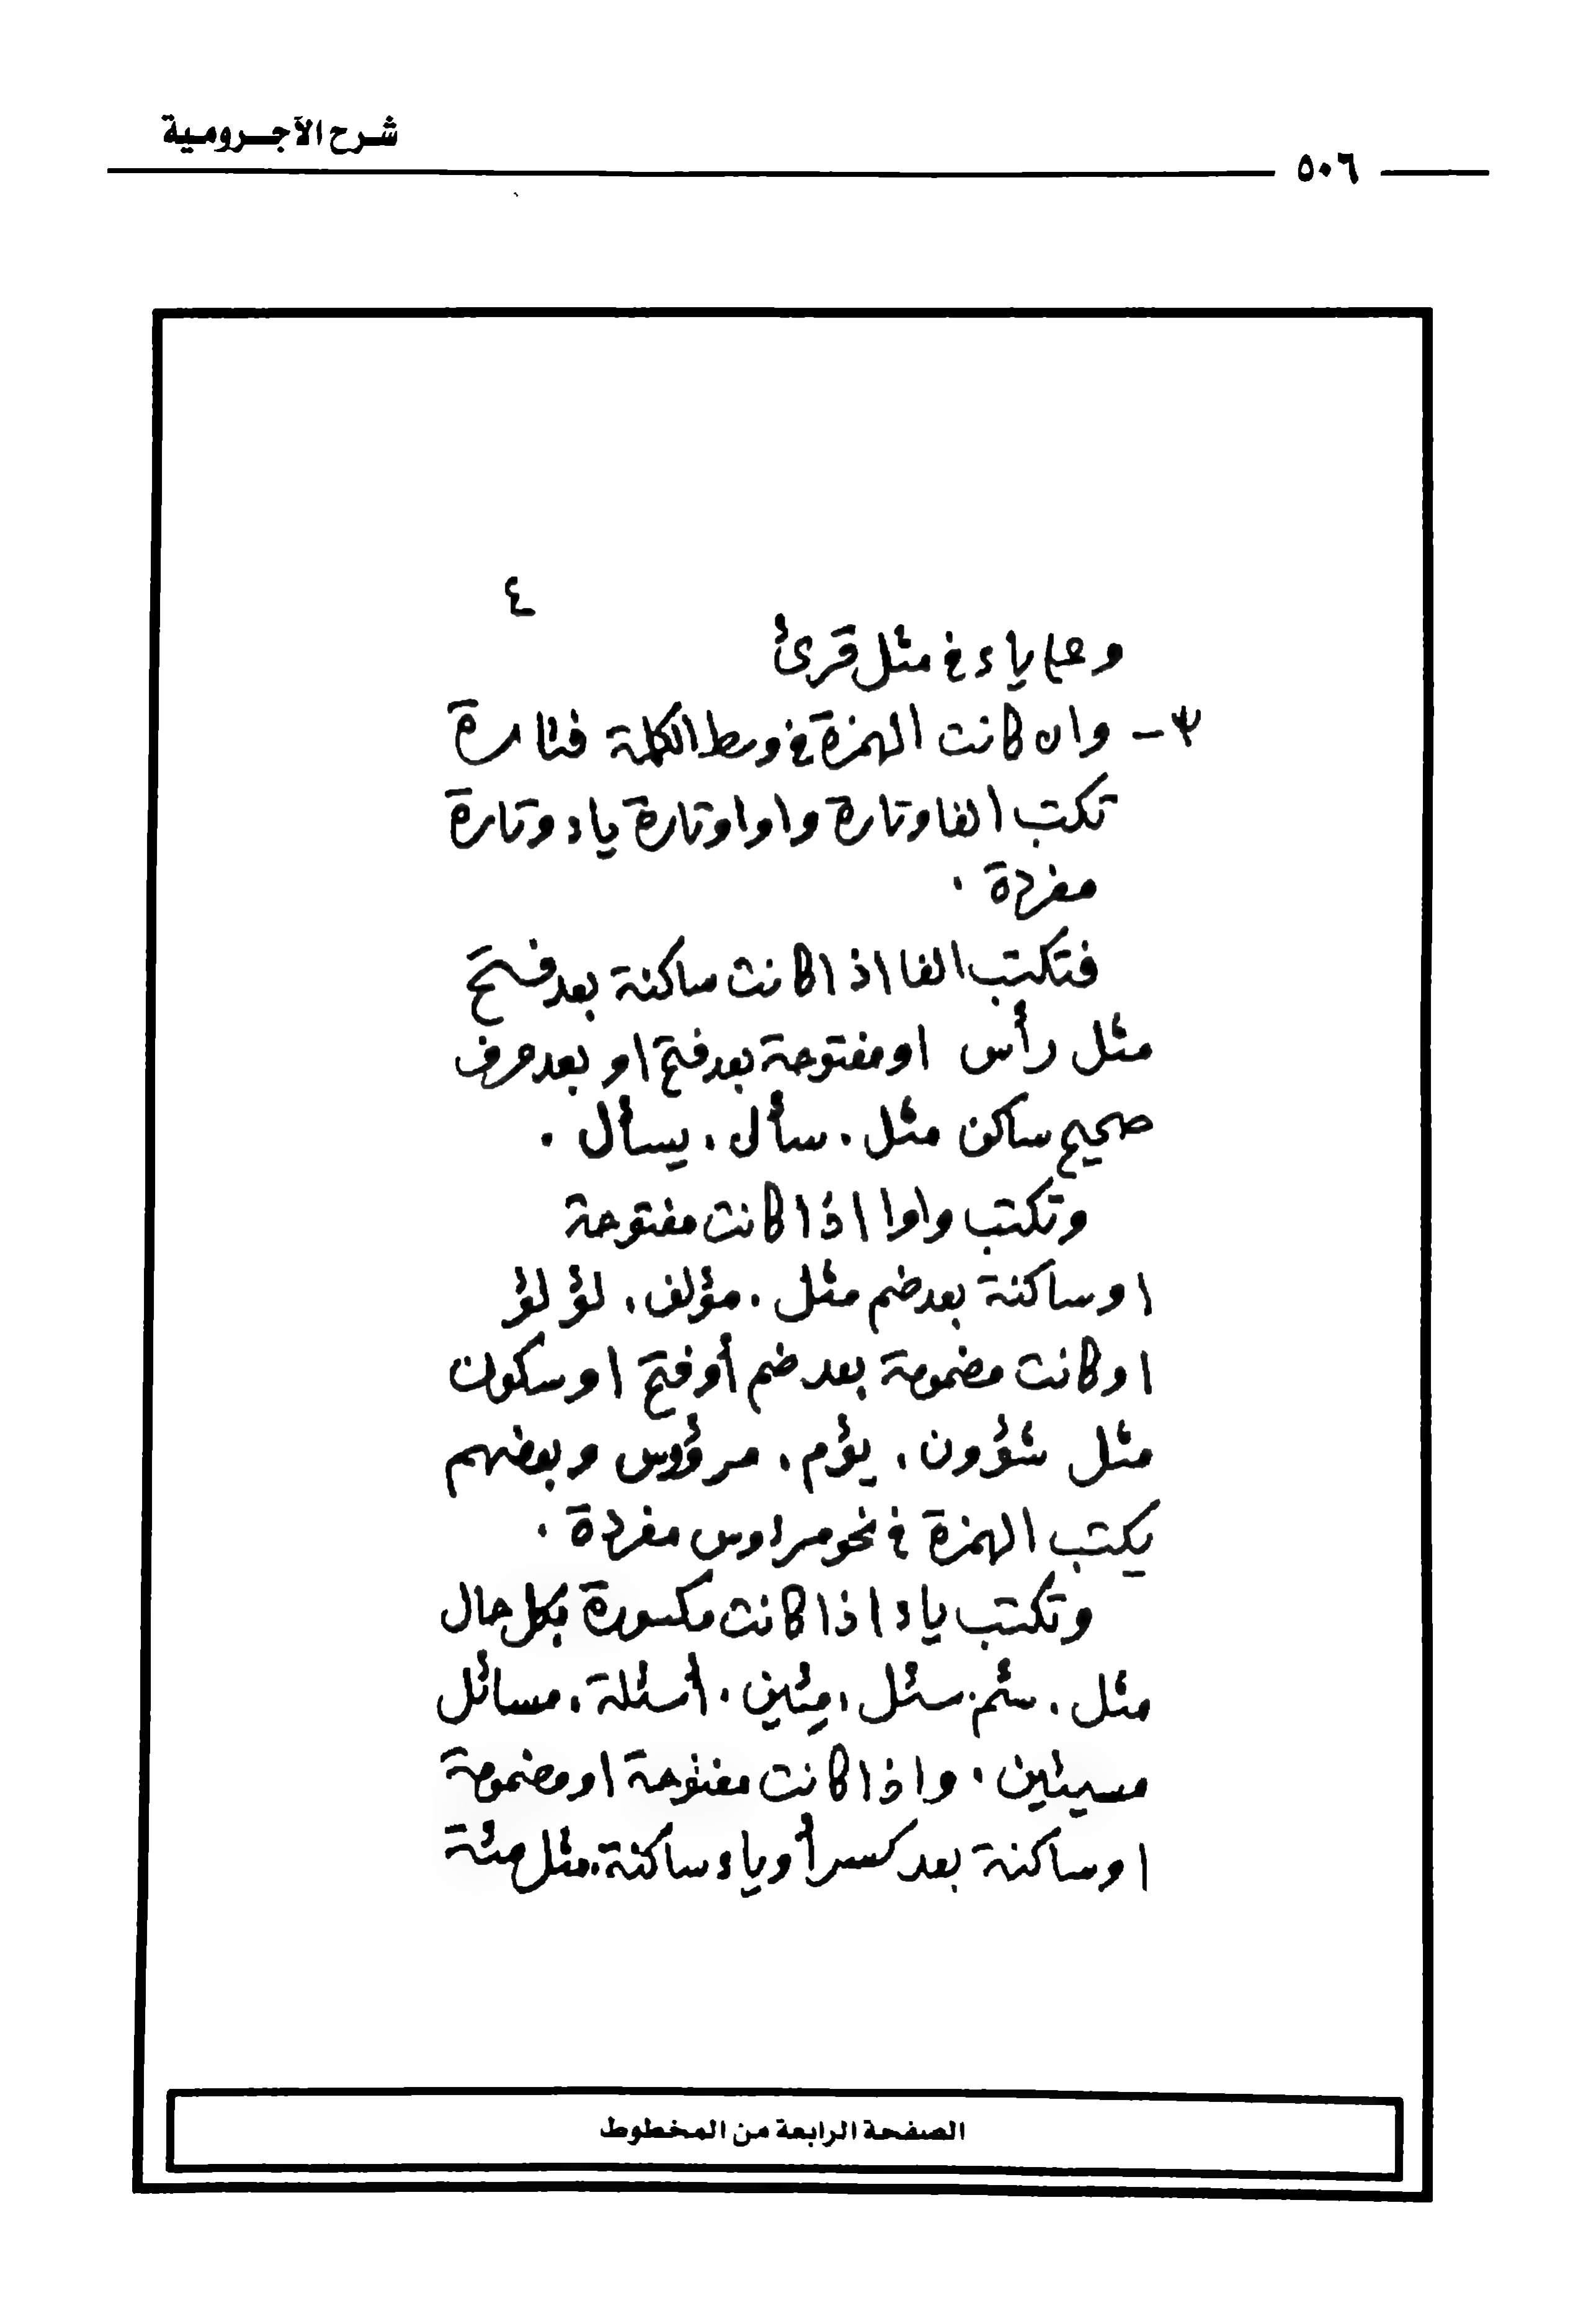 شرح الآجرومية
٥٠٦
٤
وعلى ياء في مثل قرئ
٣- وان كانت الهمزة في وسط الكلمة فتارة
تكتب الفا وتارة واوا وتارة ياء وتارة
مفردة .
فتكتب الفا اذا كانت ساكنة بعد فتح
مثل رأس او مفتوحة بعد فتح او بعد حرف
صحيح ساكن مثل . سأل ، يسأل .
وتكتب واوا اذا كانت مفتوحة
او ساكنة بعد ضم مثل . مؤلف ، لؤلؤ
او كانت مضمومة بعد ضم أو فتح او سكون
مثل شؤون ، يؤم ، مرؤوس وبعضهم
يكتب الهمزة في نحو مرءوس مفردة .
وتكتب ياء اذا كانت مكسورة بكل حال
مثل . سئم . سئل ، مئين . أسئلة ، مسائل
مسيئين . واذا كانت مفتوحة او مضمومة
او ساكنة بعد كسر أو ياء ساكنة . مثل مئة
الصفحة الرابعة من المخطوط